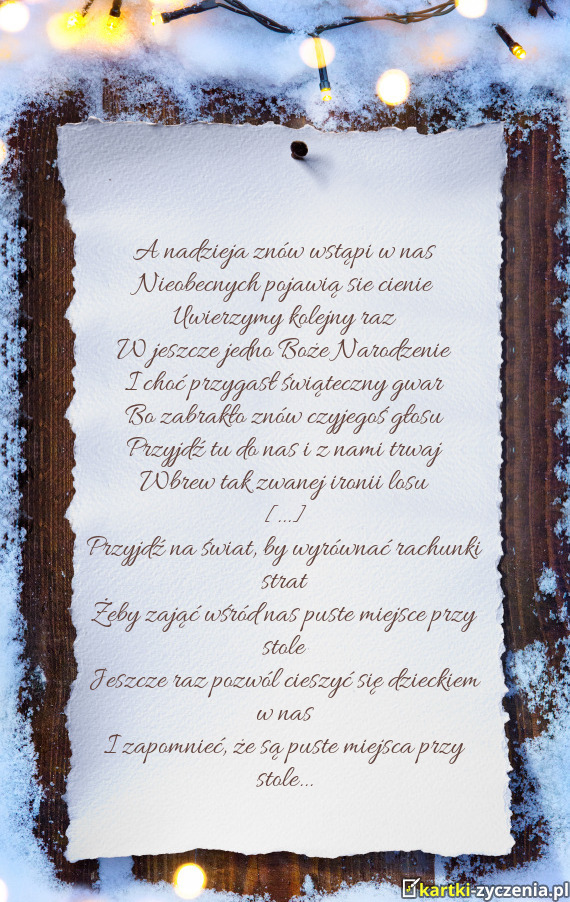 A nadzieja znów wstąpi w nas
Nieobecnych pojawią sie cienie
Uwierzymy kolejny raz
W jeszcze jedno Boże Narodzenie
I choć przygasł świąteczny gwar
Bo zabrakło znów czyjegoś głosu
Przyjdź tu do nas i z nami trwaj
Wbrew tak zwanej ironii losu
[...]
Przyjdź na świat, by wyrównać rachunki
strat
Żeby zająć wśród nas puste miejsce przy
stole
Jeszcze raz pozwól cieszyć się dzieckiem
w nas
I zapomnieć, że są puste miejsca przy
stole...
kartki-zyczenia.pl